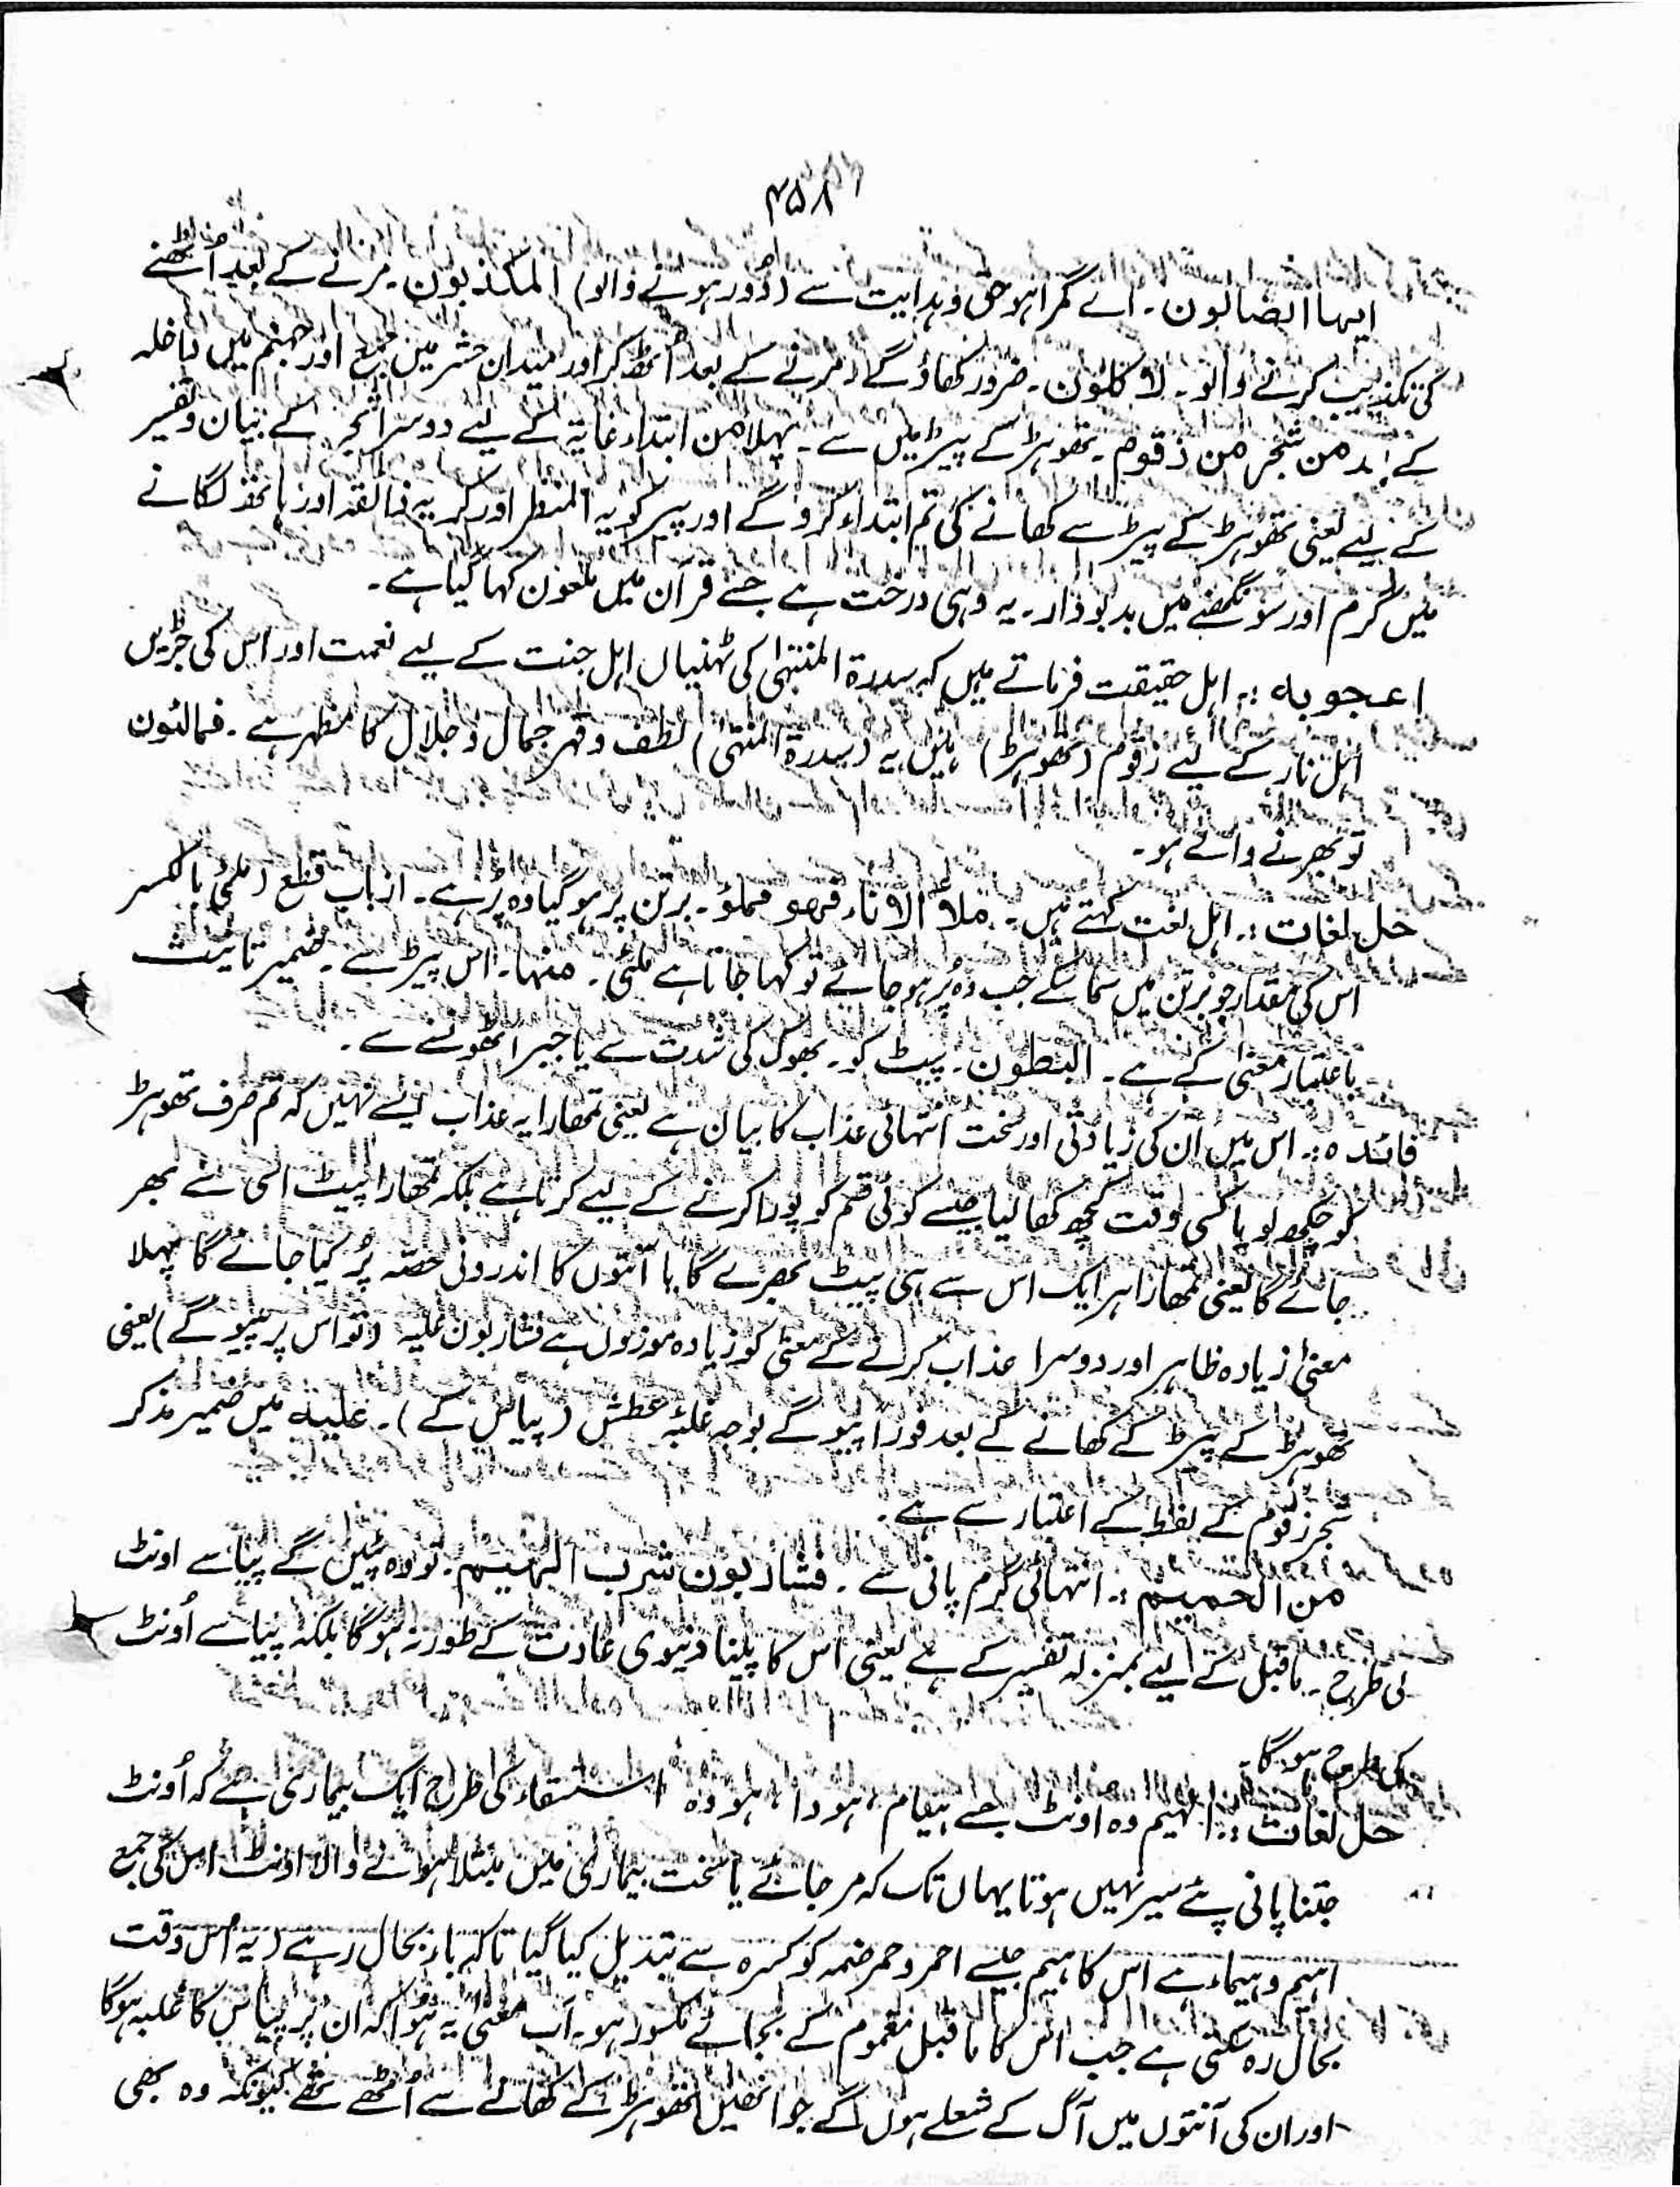 ۴۵۸
ایہا الضالون۔ اے گمراہو حق و ہدایت سے (دُور ہونے والو) المکذبون۔ مرنے کے بعد اُٹھنے
کی تکذیب کرنے والو۔ لاٰکلون۔ ضرور کھاؤ گے (مرنے کے بعد اُٹھ کر اور میدانِ حشر میں جمع اور جہنم میں داخلہ
کے بعد من شجر من زقوم۔ تھوہڑ کے پیڑ میں سے۔ پہلا من ابتداء غایۃ کے لیے دوسرا شجر کے بیان و تفسیر
کے لیے یعنی تھوہڑ کے پیڑ سے کھانے کی تم ابتداء کرو گے اور پیڑ کریہ المنظر اور کریہ ذائقہ اور ہاتھ لگانے
میں گرم اور سونگھنے میں بدبودار۔ یہ وہی درخت ہے جسے قرآن میں ملعون کہا گیا ہے۔
اعجوبہ :۔ اہل حقیقت فرماتے ہیں کہ سدرۃ المنتہیٰ کی ٹہنیاں اہلِ جنت کے لیے نعمت اور اس کی جڑیں
اہلِ نار کے لیے زقوم (تھوہڑ) ہیں یہ (سدرۃ المنتہیٰ) لطف و قہر جمال و جلال کا مظہر ہے۔ فمالئون
تو بھرنے والے ہو۔
حل لغات :۔ اہل لغت کہتے ہیں۔ ملأ الاناء فھو مملؤ۔ برتن پر ہو گیا وہ پُر ہے۔ از باب قطع (ملئ بالکسر
اس کی مقدار جو برتن میں سما سکے جب وہ پُر ہو جائے تو کہا جاتا ہے ملئی۔ منہا۔ اس پیڑ سے۔ ضمیر تانیث
باعتبار معنی کے ہے۔ البطون۔ پیٹ کو۔ بھوک کی شدت سے یا جبراً ٹھونسنے سے۔
فائدہ :۔ اس میں ان کی زیادتی اور سخت انتہائی عذاب کا بیان ہے یعنی تمھارا یہ عذاب ایسے نہیں کہ تم صرف تھوہڑ
کو چکھ لو یا کسی وقت کچھ کھا لیا جیسے کوئی قسم کو پورا کرنے کے لیے کرتا ہے بلکہ تمھارا پیٹ اسی سے بھر
جائے گا یعنی تمھارا ہر ایک اس سے ہی پیٹ بھرے گا یا آنتوں کا اندرونی حصہ پُر کیا جائے گا پہلا
معنیٰ زیادہ ظاہر اور دوسرا عذاب کرنے کے معنیٰ کو زیادہ موزوں ہے فشاربون علیہ (تو اس پر پیو گے) یعنی
تھوہڑ کے پیڑ کے کھانے کے بعد فوراً پیو گے بوجہ غلبۂ عطش (پیاس کے)۔ علیہ میں ضمیر مذکر
شجر زقوم کے لفظ کے اعتبار سے ہے۔
من الحمیم :۔ انتہائی گرم پانی سے۔ فشاربون شرب الہیم۔ تو وہ پئیں گے پیاسے اونٹ
کی طرح۔ ماقبل کے لیے بمنزلہ تفسیر کے ہے یعنی اس کا پینا دنیوی عادت کے طور نہ ہوگا بلکہ پیاسے اُونٹ
کی طرح ہوگا۔
حل لغات :۔ الہیم وہ اونٹ جسے ہیام ہو وہ استسقاء کی طرح ایک بیماری ہے کہ اُونٹ
جتنا پانی پئے سیر نہیں ہوتا یہاں تک کہ مر جائے یا سخت بیماری میں مبتلا ہونے والا اونٹ اس کی جمع
اہیم و ہیماء ہے اس کا ہیم جیسے احمر و حمر ضمہ کو کسرہ سے تبدیل کیا گیا تاکہ یاء بحال رہے (یہ اس وقت
بحال رہ سکتی ہے جب اس کا ماقبل مضموم کے بجائے مکسور ہو۔ اب معنی یہ ہوا کہ ان پر پیاس کا غلبہ ہوگا
اور ان کی آنتوں میں آگ کے شعلے ہوں گے جو انھیں تھوہڑ کے کھانے سے اُٹھے تھے کیونکہ وہ بھی